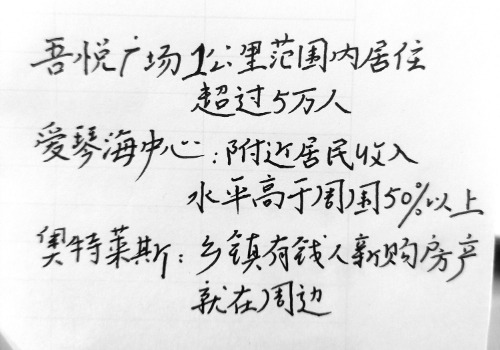 吾悦广场1公里范围内居住
超过5万人
爱琴海中心:附近居民收入
水平高于周围50%以上
奥特莱斯:乡镇有钱人新购房产
就在周边